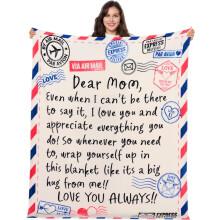 VIA AIR MAIL
EXPRESS
PAR AVION
LOVE
Dear Mom,
Even when I can't be there
to say it, I love you and
appreciate everything you
do! So whenever you need
to, wrap yourself up in
this blanket like its a big
hug from me!!
LOVE YOU ALWAYS!!
LOVE
EXPRESS